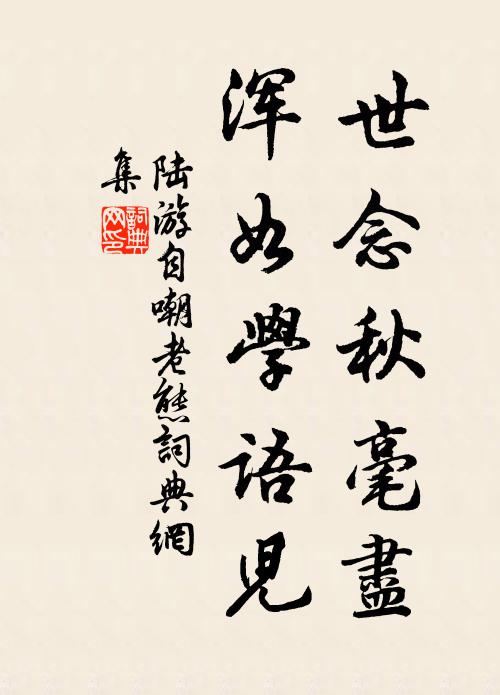 世念秋毫盡
浑如學語児
陆游自嘲老態詞典網
集
詞典
网印